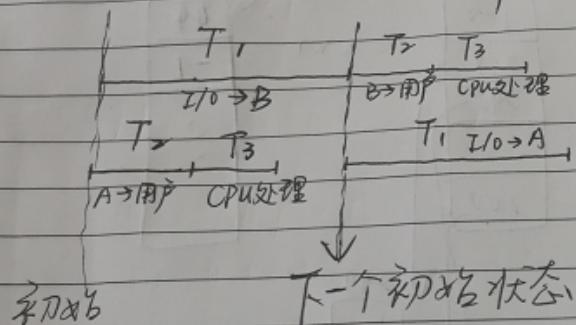 T₁ T₂ T₃
I/O→B B→用户 CPU处理
T₂ T₃ T₁ I/O→A
A→用户 CPU处理
初始 下一个初始状态